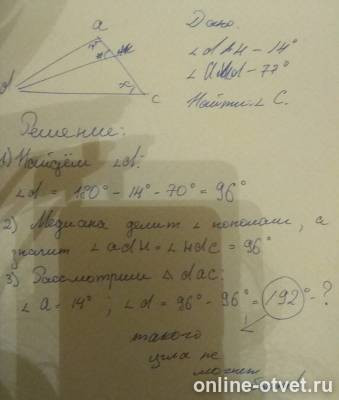 a
d
c
Дано:
∠dAH - 14°
- 77°
Найти: ∠ C.
Решение:
1) Найдём ∠d:
∠d = 180° - 14° - 70° = 96°
2) Медиана делит ∠ пополам, а
значит ∠adH = ∠Hdc = 96°
3) Рассмотрим △ dac:
∠a - 14° ; ∠d = 96° - 96° = 192° - ?
такого
угла не
может
online-otvet.ru